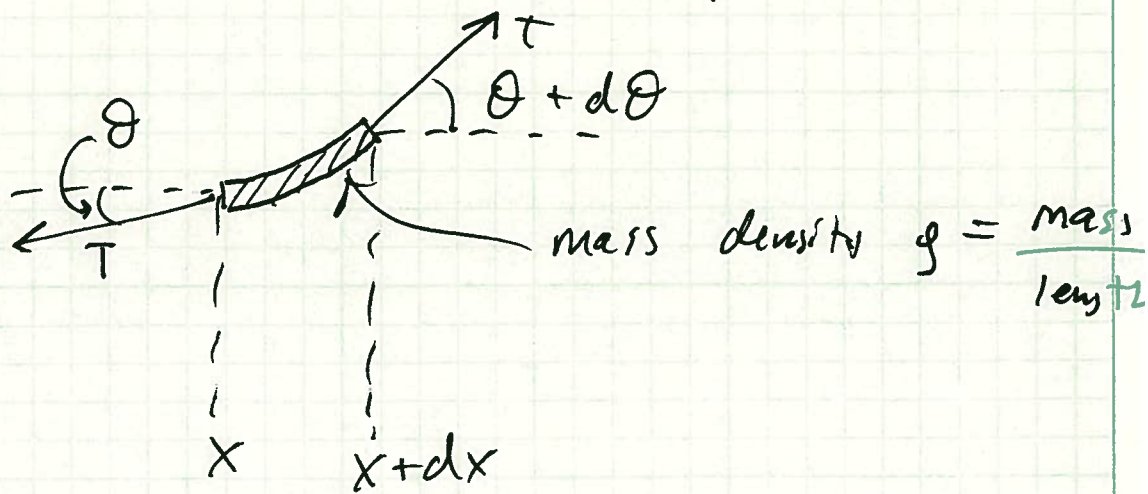 T
θ + dθ
θ
T
mass density ρ = mass
length
x x+dx